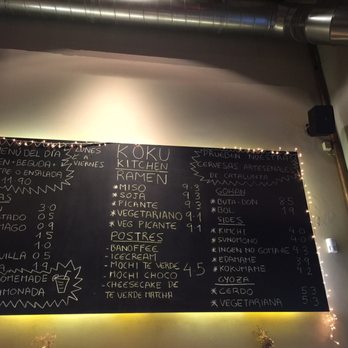 MENÚ DEL DÍA
LUNES
A
VIERNES
BEGUDA
O ENSALADA
11.90
3.0
TADO 0.5
MAGO 0.9
1.5
0.5
VILLA 0.5
HOMEMADE
LIMONADA
KOKU
KITCHEN
RAMEN
*MISO 9.3
*SOJA 9.3
*PICANTE 9.3
*VEGETARIANO 9.1
*VEG PICANTE 9.1
POSTRES
-BANOFFEE
-ICECREAM
-MOCHI TE VERDE 4.5
-MOCHI CHOCO
-CHEESECAKE DE
TE VERDE MATCHA
PRUEBEN NUESTRAS
CERVESAS ARTESANALES
DE CATALUNYA
GOHAN
*BUTA-DON 8.5
*BOL
SIDES
*KIMCHI 4.0
*SUNOMONO
*INGEN NO GOMAE
*EDAMAME
*KOKUMAME
GYOZA
*CERDO 5.3
*VEGETARIANA 5.3